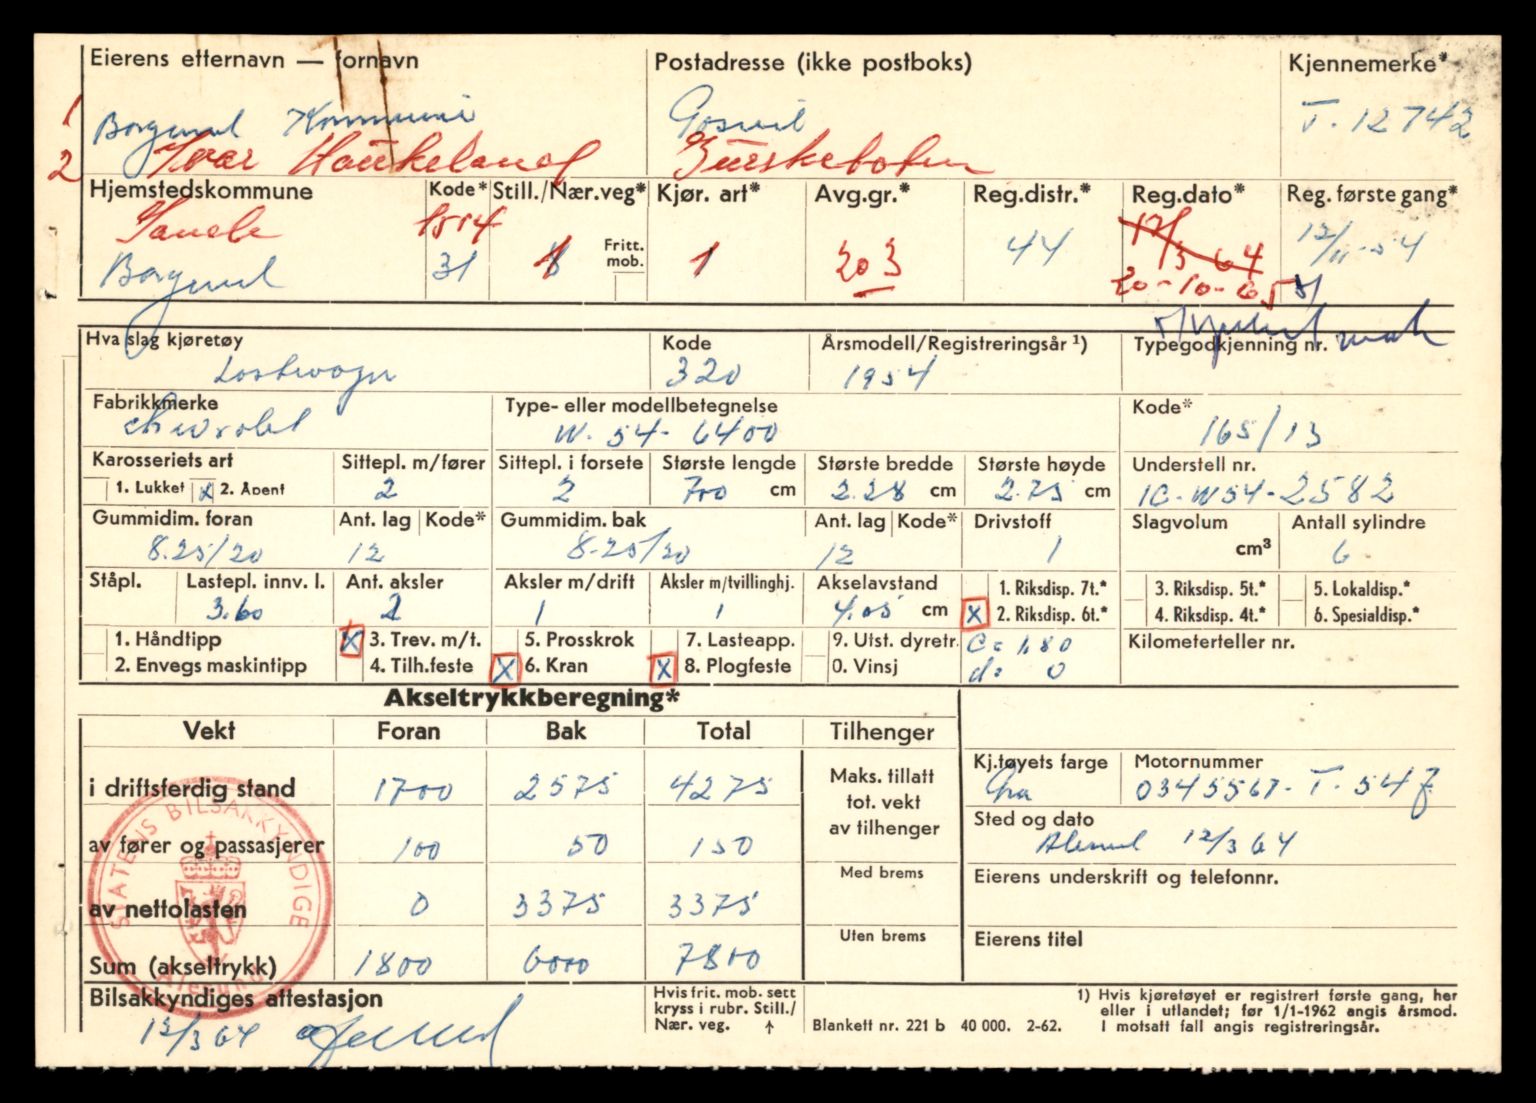 Eierens etternavn — fornavn Postadresse (ikke postboks) Kjennemerke*
1 Borgund Kommune T. 12742
2 Ivar Haukeland Gurskebotn
Hjemstedskommune Kode* Still./Nær.veg* Kjør. art* Avg.gr.* Reg.distr.* Reg.dato* Reg. første gang*
Sande 1514 1 1 203 44 17/3 64 12/11-54
Borgund 31 8 Fritt. mob. 20-10-65
Hva slag kjøretøy Kode Årsmodell/Registreringsår ¹) Typegodkjenning nr.
Lastevogn 320 1954
Fabrikkmerke Type- eller modellbetegnelse Kode*
Chevrolet W. 54- 6400 165/13
Karosseriets art Sittepl. m/fører Sittepl. i forsete Største lengde Største bredde Største høyde Understell nr.
1. Lukket x 2. Åpent 2 2 700 cm 2.28 cm 2.75 cm 1C-W54-2582
Gummidim. foran Ant. lag Kode* Gummidim. bak Ant. lag Kode* Drivstoff Slagvolum Antall sylindre
8.25/20 12 8.25/20 12 1 cm³ 6
Ståpl. Lastepl. innv. l. Ant. aksler Aksler m/drift Aksler m/tvillinghj. Akselavstand 1. Riksdisp. 7t.* 3. Riksdisp. 5t.* 5. Lokaldisp.*
3.60 2 1 1 4.05 cm x 2. Riksdisp. 6t.* 4. Riksdisp. 4t.* 6. Spesialdisp.*
1. Håndtipp x 3. Trev. m/t. 5. Prosskrok 7. Lasteapp. 9. Utst. dyretr. C= 1.80 Kilometerteller nr.
2. Envegs maskintipp 4. Tilh.feste x 6. Kran x 8. Plogfeste 0. Vinsj d= 0
Akseltrykkberegning*
Vekt Foran Bak Total Tilhenger
i driftsferdig stand 1700 2575 4275 Maks. tillatt tot. vekt av tilhenger Kj.tøyets farge Motornummer
0345567-T-54
av fører og passasjerer 100 50 150 Sted og dato
12/3 64
av nettolasten 0 3375 3375 Med brems Eierens underskrift og telefonnr.
Sum (akseltrykk) 1800 6000 7800 Uten brems Eierens titel
STATENS BILSAKKYNDIGE
Ålesund
Bilsakkyndiges attestasjon Hvis frit. mob. sett kryss i rubr. Still./ Nær. veg. ↑ Blankett nr. 221 b 40 000. 2-62. 1) Hvis kjøretøyet er registrert første gang, her eller i utlandet; før 1/1-1962 angis årsmod. I motsatt fall angis registreringsår.
12/3 64